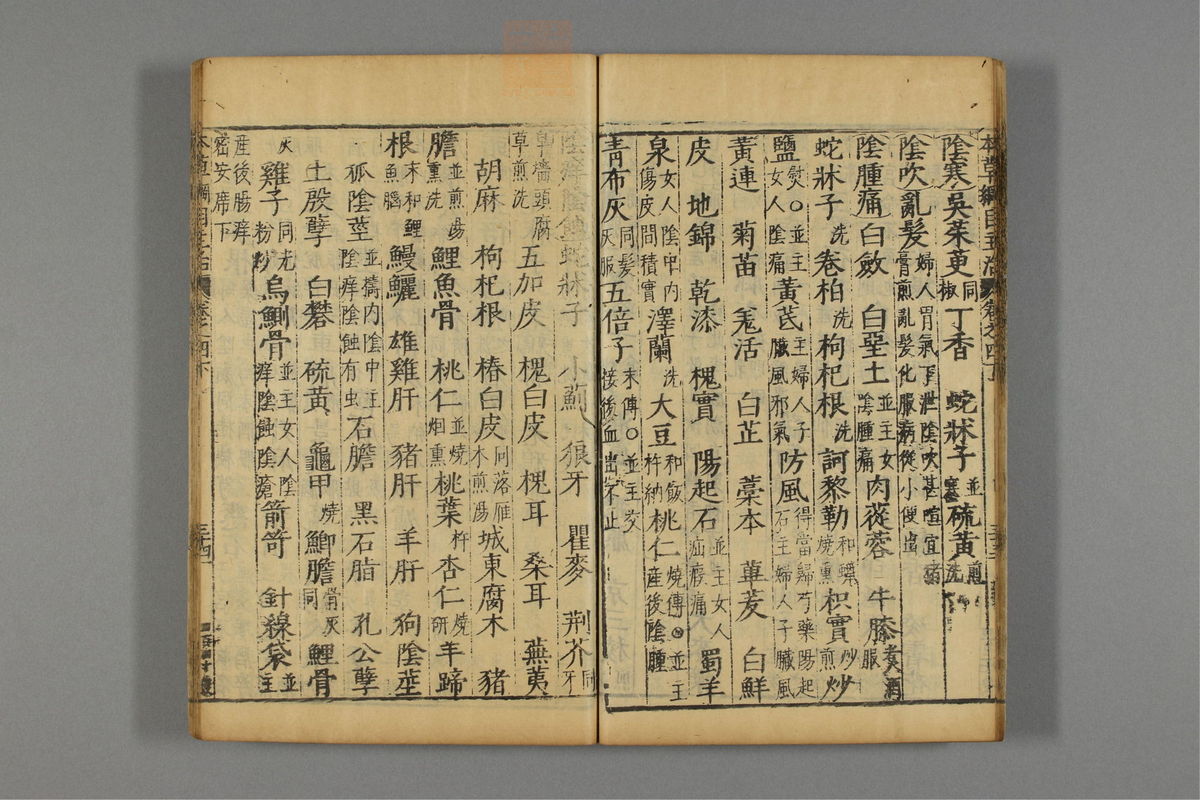 本草綱目主治 卷之四下
陰寒吳茱萸同椒丁香 蛇牀子並塞硫黃煎洗
陰吹亂髮婦人胃氣下泄陰吹甚喧宜猪膏煎亂髮化服病從小便出
陰腫痛白斂 白堊土並主女陰腫痛肉蓯蓉 牛膝煑酒服
蛇牀子洗卷柏洗枸杞根洗訶黎勒和蠟燒熏枳實炒煎炒
鹽熨○並主女人陰痛黃芪主婦人子臟風邪氣防風得當歸芍藥陽起石主婦人子臟風
黃連 菊苗 羌活 白芷 藁本 蓽茇 白鮮
皮 地錦 乾漆 槐實 陽起石並主女人疝瘕痛 蜀羊
泉女人陰中內傷皮間積實澤蘭洗大豆和飯杵納桃仁燒傅○並主產後陰腫
青布灰同髮灰服五倍子末傅○並主交接後血出不止
陰痒陰蝕蛇牀子 小薊 狼牙 瞿麥 荊芥同牙
皁墻頭腐草煎洗 五加皮 槐白皮 槐耳 桑耳 蕪荑
胡麻 枸杞根 椿白皮同落雁木煎湯城東腐木 豬
膽並煎湯熏洗鯉魚骨 桃仁並燒烟熏桃葉杵杏仁燒研羊蹄
根末和鯉魚腦鰻鱺 雄雞肝 豬肝 羊肝 狗陰莖
狐陰莖並搗內陰中主陰痒陰蝕有虫石膽 黑石脂 孔公孽
土殷孽 白礬 硫黃 龜甲燒鯽膽同骨灰鯉骨
灰 雞子同光粉炒烏鰂骨並主女人陰痒陰蝕陰瘡箭笴 針線袋並主
產後腸痒密安席下
本草綱目主治 卷之四下